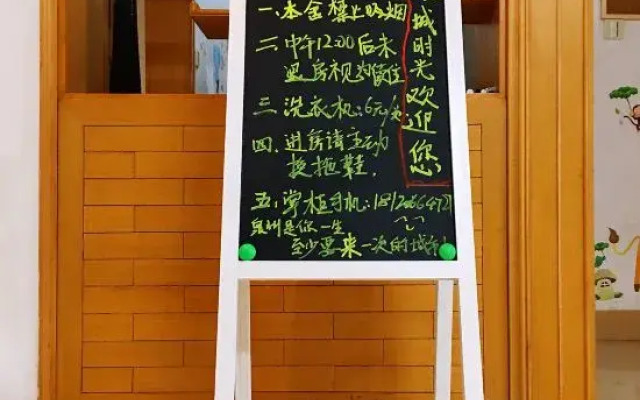 一.本舍禁止吸烟
二.中午12:00后未
退房视为续住
三.洗衣机:6元/次
四.进房请主动
换拖鞋.
五.掌柜手机:
泉州是你一生
至少要来一次的城市
城时光欢迎您